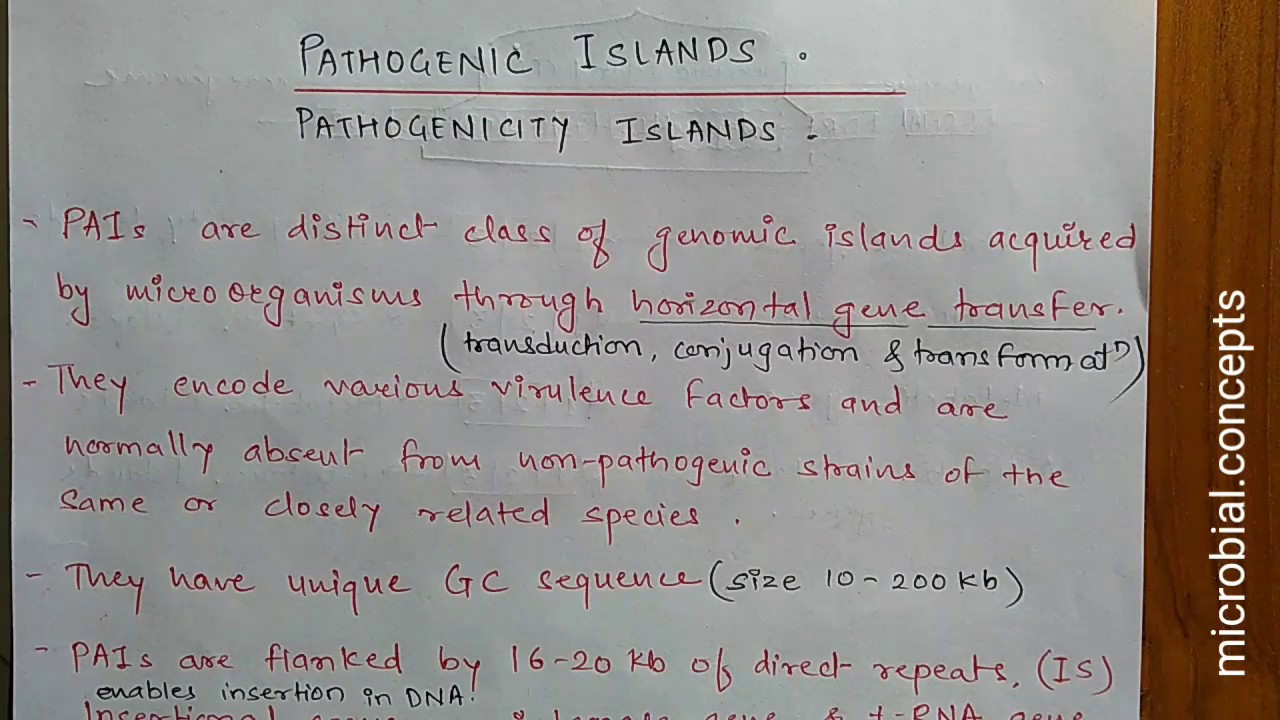 PATHOGENIC ISLANDS.
PATHOGENICITY ISLANDS.
- PAIs are distinct class of genomic islands acquired
by microorganisms through horizontal gene transfer.
(transduction, conjugation & transformatⁿ)
- They encode various virulence factors and are
normally absent from non-pathogenic strains of the
same or closely related species.
- They have unique GC sequence (size 10-200 Kb)
- PAIs are flanked by 16-20 Kb of direct repeats, (IS)
enables insertion in DNA!
Insertional & t-RNA gene
microbial.concepts